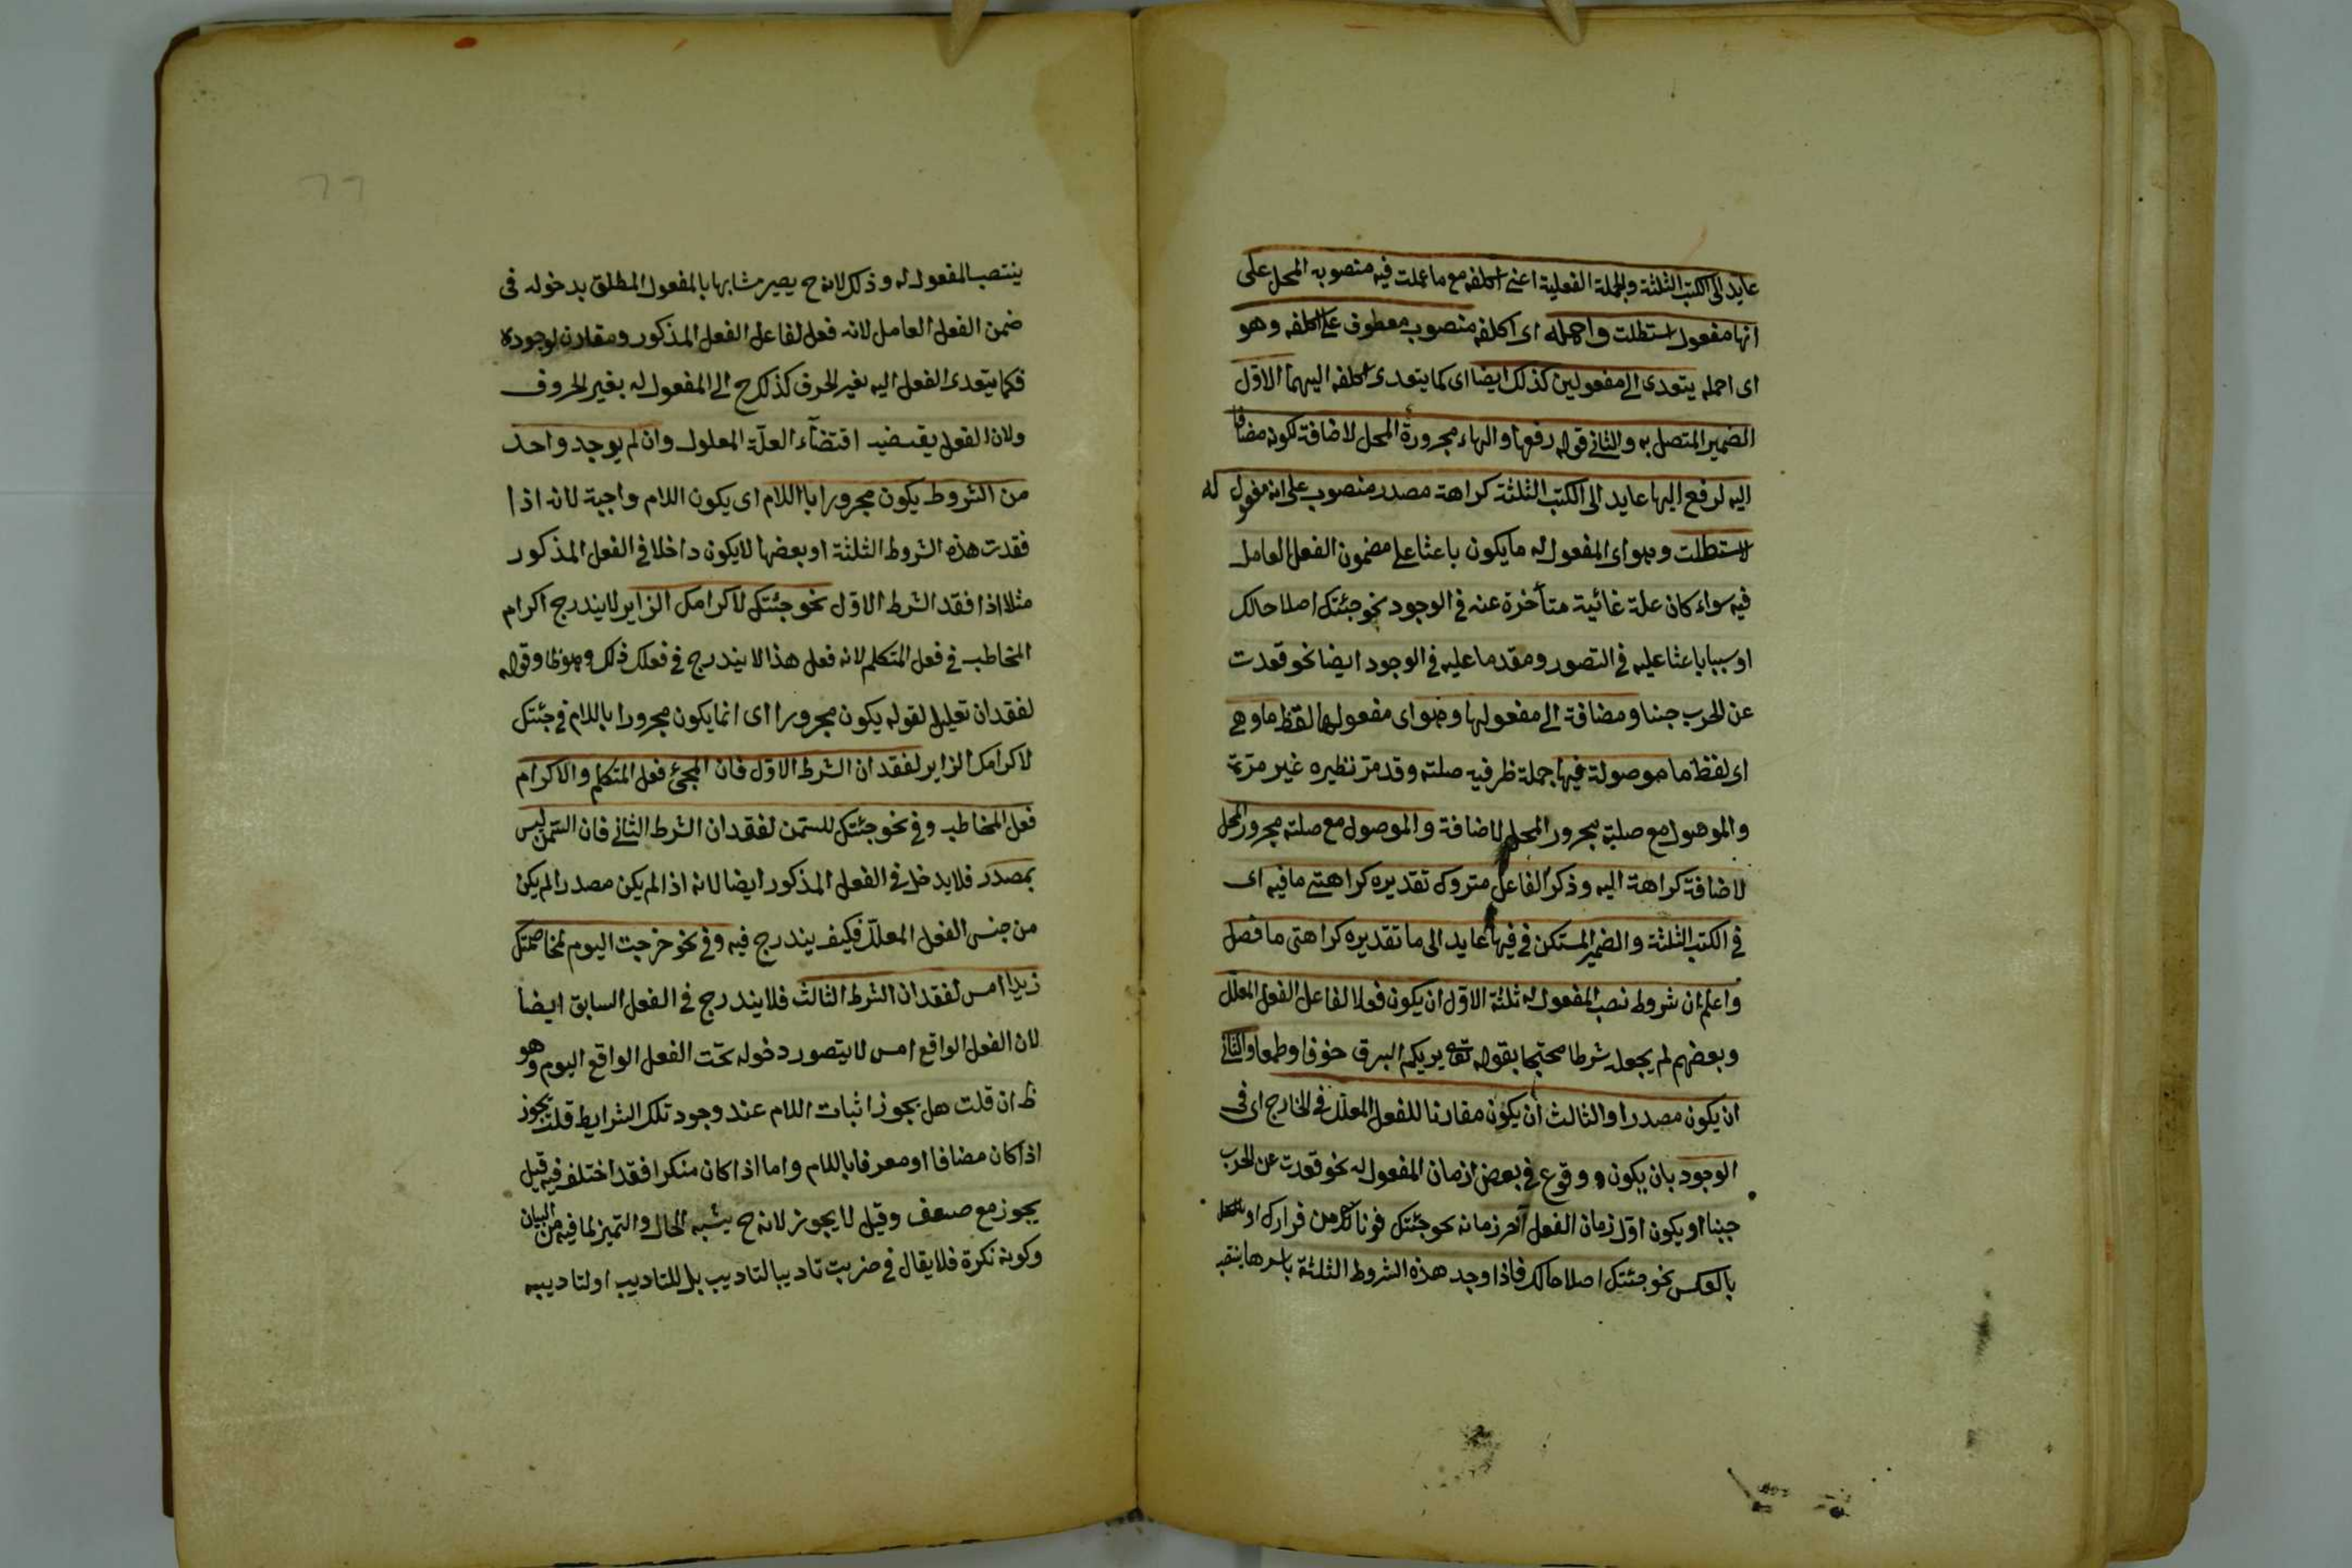 عايد الى الكتب الثلثة والجملة الفعلية اعنى اكلفه مع ما عملت فيه منصوبه المحل على
انها مفعول استطلت واحمله اى اكلفه منصوب معطوف على اكلفه وهو
اى احمله يتعدى الى مفعولين كذلك ايضا اى كما يتعدى اكلفه اليهما الاوّل
الضمير المتصل به والثانى قوله رفعها والهاء مجرورة المحل لاضافة لكونه مضافا
اليه لرفع اليها عايد الى الكتب الثلثة كراهة مصدر منصوب على انه مفعول له
لاستطلت وهو اى المفعول له ما يكون باعثا على مضمون الفعل العامل
فيه سواء كان علة غائية متأخرة عنه فى الوجود نحو جئتك اصلاحا لك
او سببا باعثا عليه فى التصور ومقدما عليه فى الوجود ايضا نحو قعدت
عن الحرب جبنا ومضافة الى مفعولها وهو اى مفعولها لفظ ما وهى
اى لفظ ما موصولة فيها جملة ظرفيه صلته وقد مرّ نظيره غير مرّة
والموصول مع صلته مجرور المحل لاضافة والموصول مع صلته مجرور المحل
لاضافة كراهة اليه وذكر الفاعل متروك تقديره كراهتى ما فيه اى
فى الكتب الثلثة والضمير المستكن فى فيها عايد الى ما تقديره كراهتى ما فصل
واعلم ان شروط نصب المفعول له ثلثة الاوّل ان يكون فعلا لفاعل الفعل المعلّل
وبعضهم لم يجعله شرطا محتجا بقوله تع يريكم البرق خوفا وطمعا والثانى
ان يكون مصدرا والثالث ان يكون مقارنا للفعل المعلّل فى الخارج اى فى
الوجود بان يكون وقوع فى بعض ازمان المفعول له نحو قعدت عن الحرب
جبنا او يكون اوّل زمان الفعل آخر زمانه نحو جئتك خوفا من فرارك او
بالعكس نحو جئتك اصلاحا لك فاذا وجد هذه الشروط الثلثة باسرها ينتصب
٦٦
ينتصب المفعول له وذلك لانه ح يصير مشابها بالمفعول المطلق بدخوله فى
ضمن الفعل العامل لانه فعل لفاعل الفعل المذكور ومقارن لوجوده
فكما يتعدى الفعل اليه بغير الحرف كذلك ح الى المفعول له بغير الحروف
ولان الفعل يقتضيه اقتضآء العلّة المعلول وان لم يوجد واحد
من الشروط يكون مجرورا باللام اى يكون اللام واجبة لانه اذا
فقدت هذه الشروط الثلثة او بعضها لا يكون داخلا فى الفعل المذكور
مثلا اذا فقد الشرط الاوّل نحو جئتك لاكرامك الزاير لا يندرج اكرام
المخاطب فى فعل المتكلم لانه فعل هذا لا يندرج فى فعلك ذلك وهو ظ وقوله
لفقدان تعليل لقوله يكون مجرورا اى انما يكون مجرورا باللام فى جئتك
لاكرامك الزاير لفقدان الشرط الاوّل فان المجئ فعل المتكلم والاكرام
فعل المخاطب وفى نحو جئتك للسّمن لفقدان الشرط الثانى فان السّمن ليس
بمصدر فلا يدخل فى الفعل المذكور ايضا لانه اذا لم يكن مصدرا لم يكن
من جنس الفعل المعلّل فكيف يندرج فيه وفى نحو خرجت اليوم لمخاصمتك
زيدا امس لفقدان الشرط الثالث فلا يندرج فى الفعل السابق ايضا
لان الفعل الواقع امس لا يتصور دخوله تحت الفعل الواقع اليوم وهو
ظ ان قلت هل يجوز اثبات اللام عند وجود تلك الشرايط قلت يجوز
اذا كان مضافا او معرفا باللام واما اذا كان منكرا فقد اختلف فيه قيل
يجوز مع ضعف وقيل لا يجوز لانه ح يشبه الحال والتميز لما فيه من البيان
وكونه نكرة فلا يقال فى ضربت تاديبا لتاديب بل للتاديب او لتاديبه